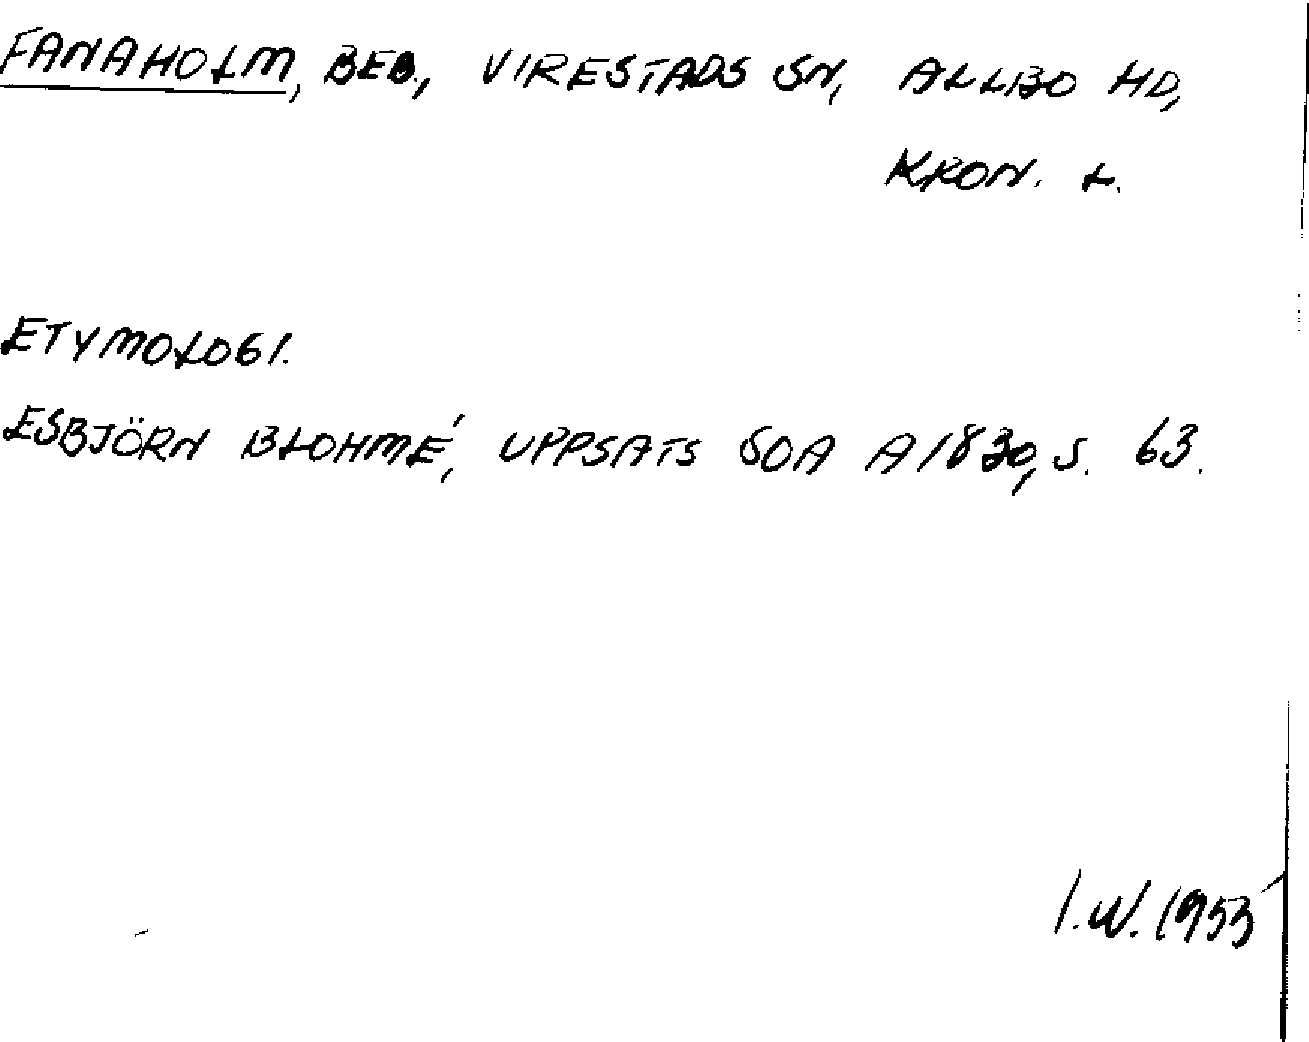 FANAHOLM, BEB., VIRESTADS SN, ALLBO HD,
KRON. L.
ETYMOLOGI.
ESBJÖRN BLOHMÉ, UPPSATS SOA A1830, S. 63.
I.W. 1953